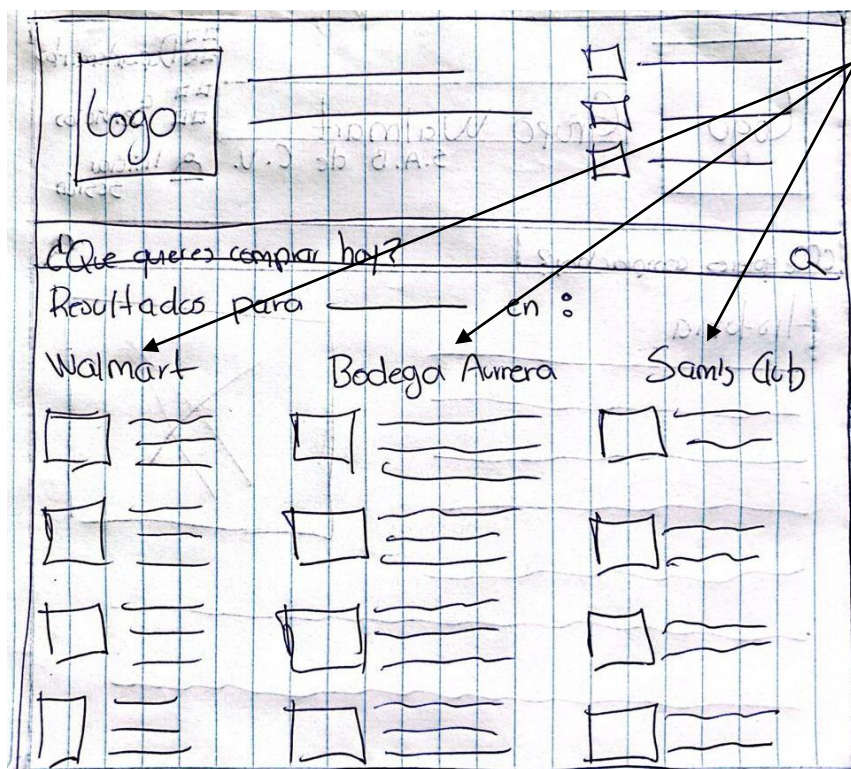 Logo
¿Que quieres comprar hoy?
Resultados para ______ en :
Walmart
Bodega Aurrera
Sam's Club